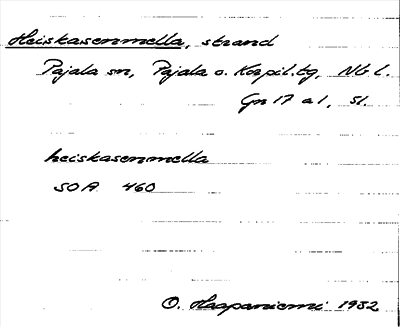 Heiskasenmella, strand
Pajala sn, Pajala o. Korpil. tg, Nb l.
Gn 17 a 1, Sl.
heiskasenmella
SOA 460
O. Haapaniemi 1932